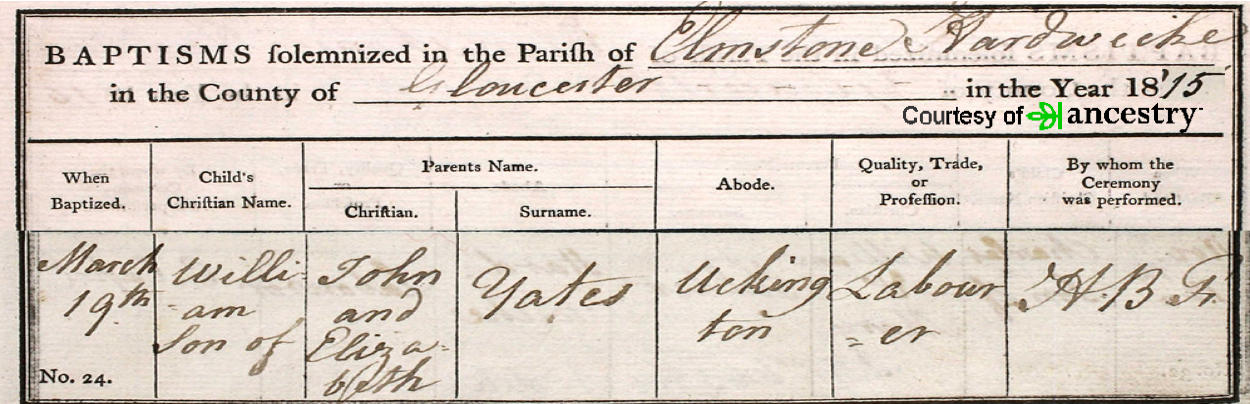 BAPTISMS ſolemnized in the Pariſh of Elmstone Hardwicke
in the County of Gloucester in the Year 1815
Courtesy of ancestry
When Baptized.
Child's Christian Name.
Parents Name.
Christian.
Surname.
Abode.
Quality, Trade, or Profeſſion.
By whom the Ceremony was performed.
March
19th
No. 24.
Willi
-am
Son of
John
and
Eliza-
beth
Yates
Ucking
ton
Labour
=er
H.B. F.